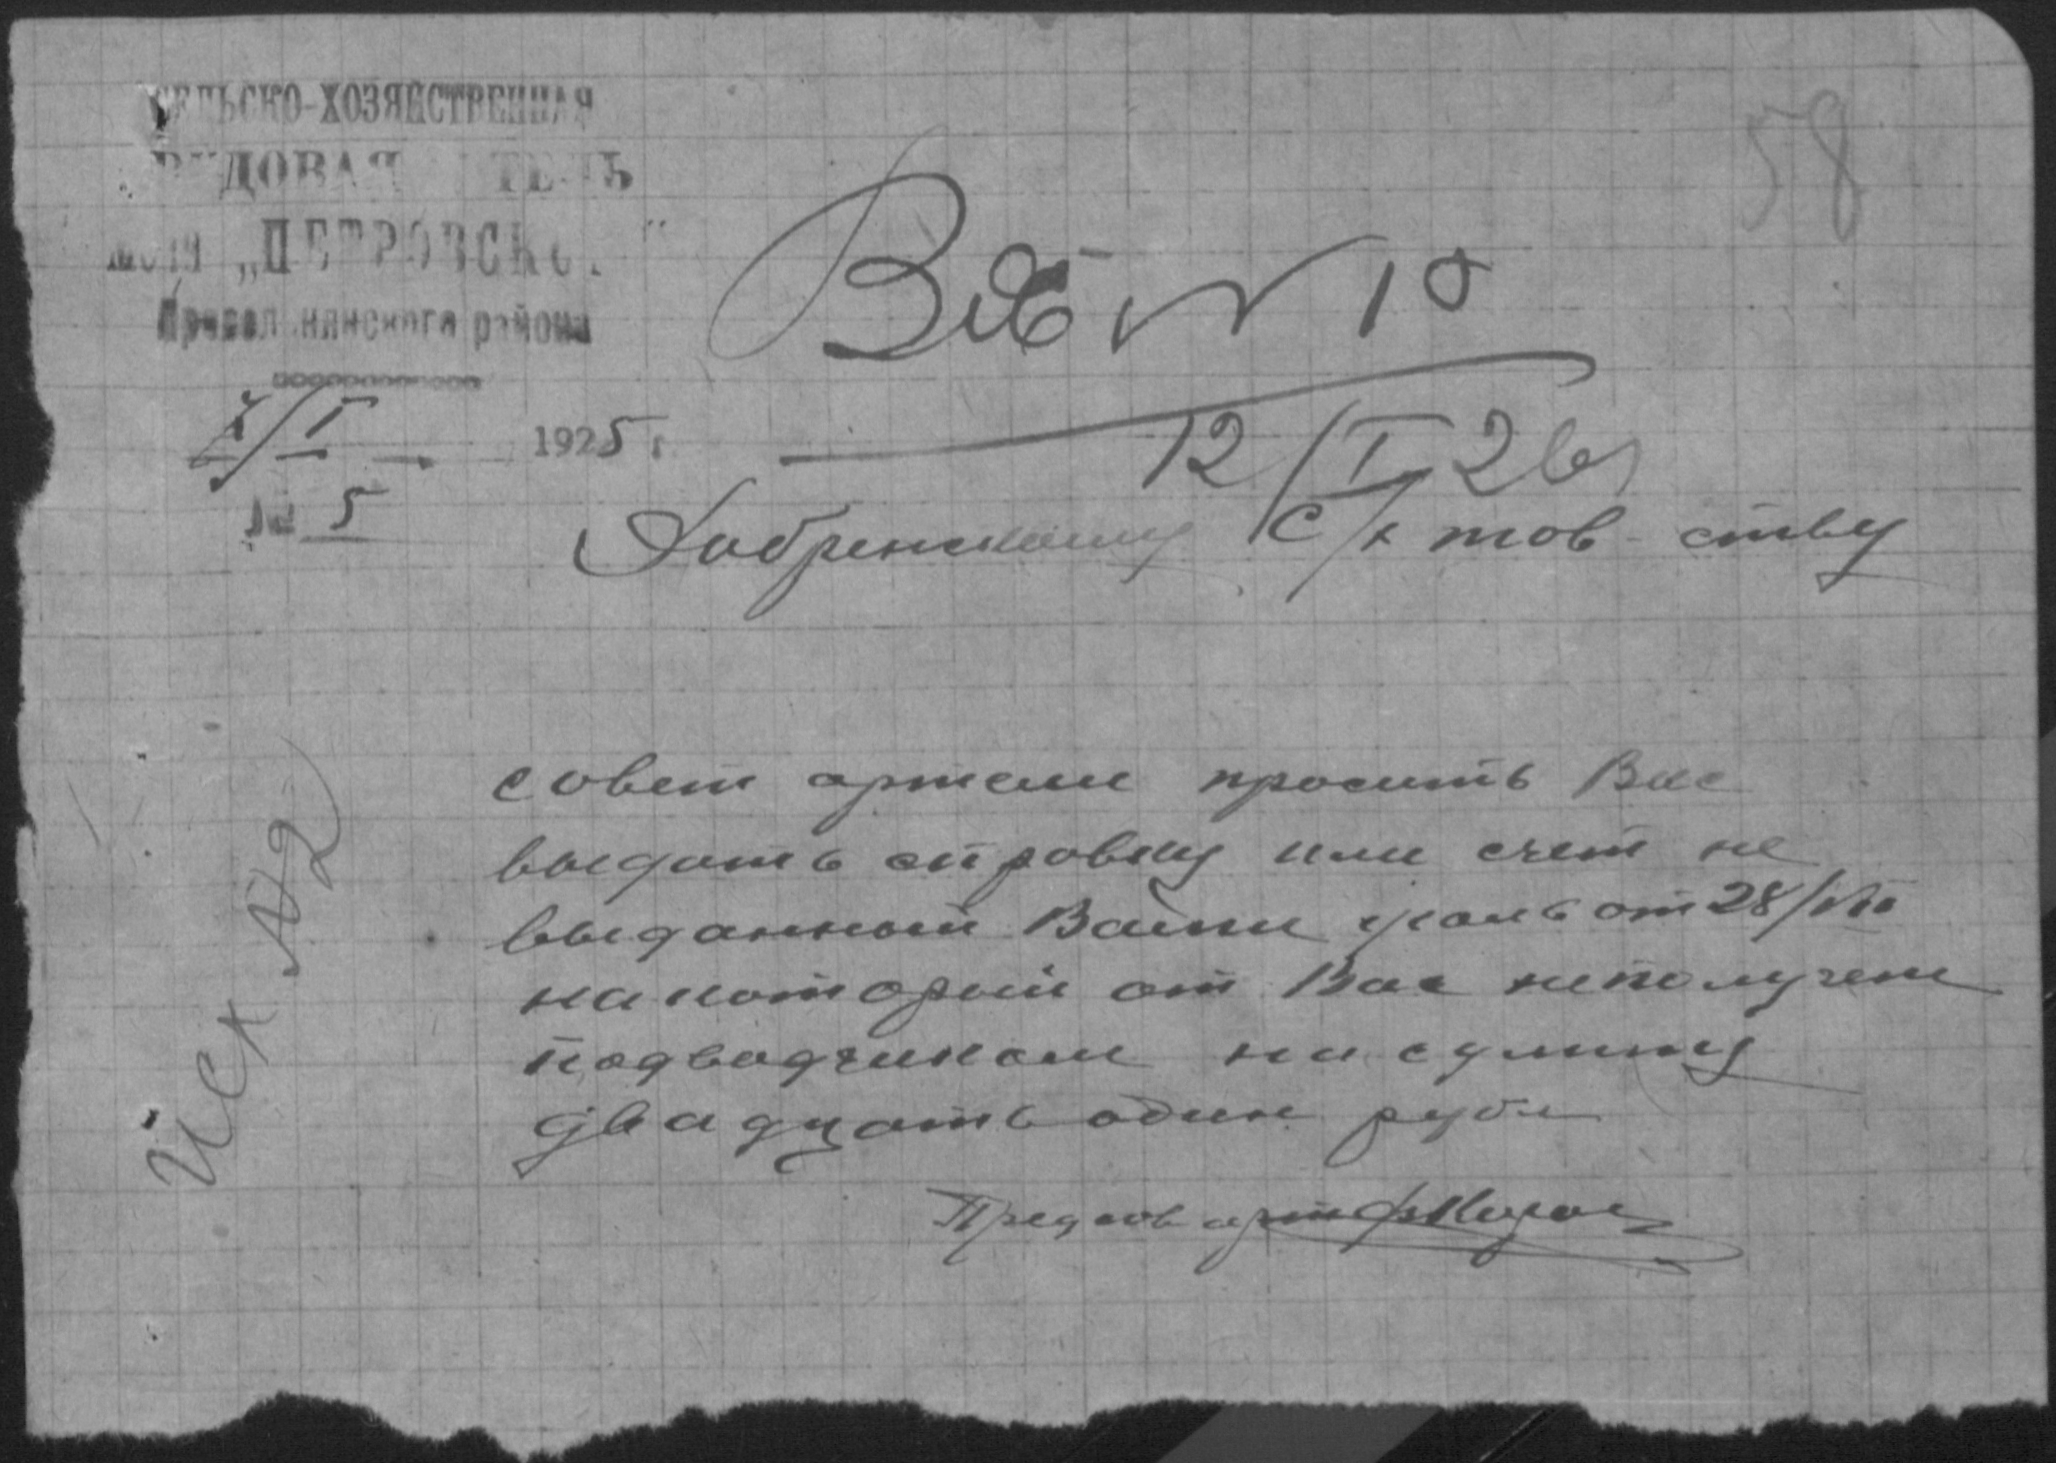 СЕЛЬСКО-ХОЗЯЙСТВЕННАЯ
ТРУДОВАЯ АРТЕЛЬ
„ПЕТРОВСКОГО"
района
58
Вх № 10
12/I 26
7/I 1925 г.
№ 5
Добренскому с/х тов-ству
Исх № 2
совет артели просить Вас
выдать справку или счет не
выданный Вами хлеб от 28/VIII
на который от Вас не получен
подводчиком на сумму
двадцать один рубл
Пред сов арт